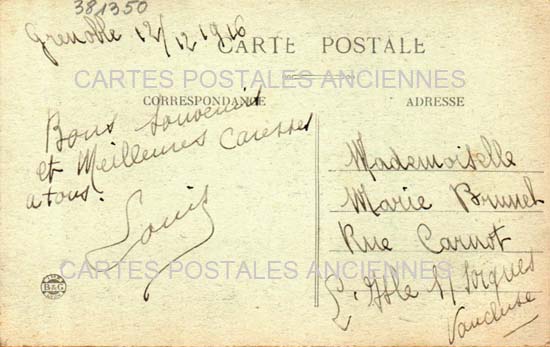 381350
Grenoble 12/12 1916
CARTE POSTALE
CARTES POSTALES ANCIENNES
CORRESPONDANCE
ADRESSE
Bons souvenirs
et Meilleures Caresses
a tous.
Louis
Mademoiselle
Marie Brunel
Rue Carnot
L'Isle s/ Sorgues
Vaucluse
CARTES POSTALES ANCIENNES
B&G